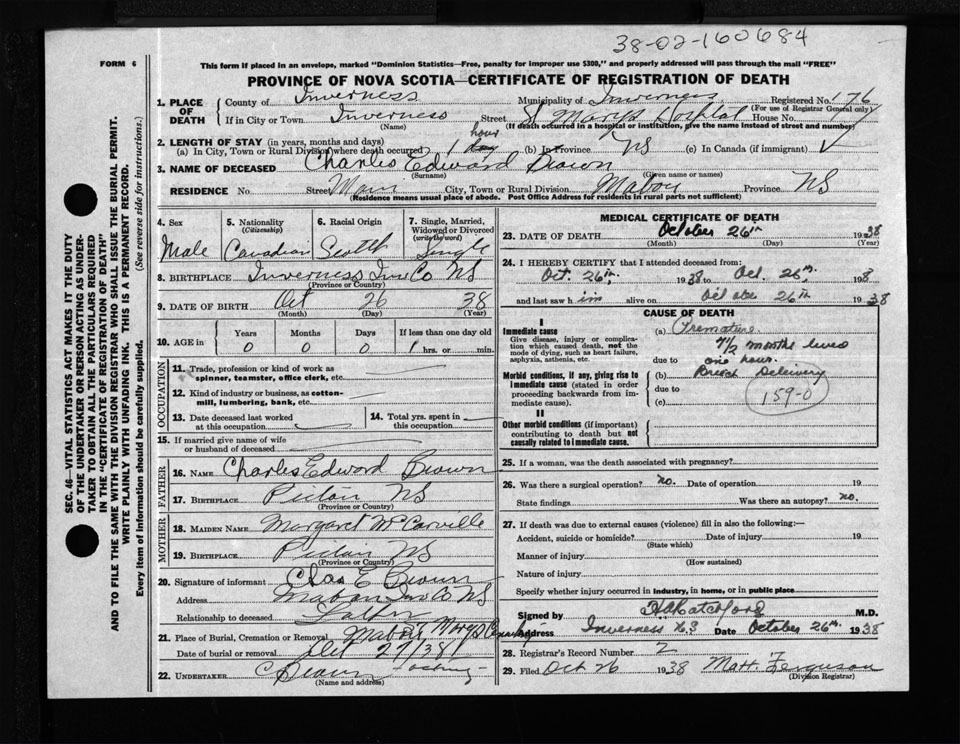 38-02-160684
FORM 6
This form if placed in an envelope, marked "Dominion Statistics—Free, penalty for improper use $300," and properly addressed will pass through the mail "FREE"
PROVINCE OF NOVA SCOTIA—CERTIFICATE OF REGISTRATION OF DEATH
1. PLACE OF DEATH
County of Inverness Municipality of Inverness Registered No. 76
(For use of Registrar General only)
If in City or Town Inverness Street St Mary's Hospital House No.
(Name) (If death occurred in a hospital or institution, give the name instead of street and number)
2. LENGTH OF STAY (in years, months and days)
(a) In City, Town or Rural Division where death occurred 1 hour day (b) In Province NS (c) In Canada (if immigrant)
3. NAME OF DECEASED Charles Edward Brown
(Surname) (Given name or names)
RESIDENCE No. Street Main City, Town or Rural Division Mabou Province NS
(Residence means usual place of abode. Post Office Address for residents in rural parts not sufficient)
4. Sex
Male
5. Nationality
(Citizenship)
Canadian
6. Racial Origin
Scotch
7. Single, Married, Widowed or Divorced
(write the word)
Single
8. BIRTHPLACE Inverness Inv Co NS
(Province or Country)
9. DATE OF BIRTH Oct 26 38
(Month) (Day) (Year)
10. AGE in
Years Months Days If less than one day old
0 0 0 1 hrs. or min.
OCCUPATION
11. Trade, profession or kind of work as spinner, teamster, office clerk, etc.
12. Kind of industry or business, as cotton-mill, lumbering, bank, etc.
13. Date deceased last worked at this occupation
14. Total yrs. spent in this occupation
15. If married give name of wife or husband of deceased
FATHER
16. NAME Charles Edward Brown
17. BIRTHPLACE NS
MOTHER
18. MAIDEN NAME Margaret McCarville
19. BIRTHPLACE NS
(Province or Country)
20. Signature of informant Chas E Brown
Address Mabou Inv Co NS
Relationship to deceased Father
21. Place of Burial, Cremation or Removal Mabou St Marys
Date of burial or removal Oct 27/38
22. UNDERTAKER
(Name and address)
MEDICAL CERTIFICATE OF DEATH
23. DATE OF DEATH October 26th 1938
(Month) (Day) (Year)
24. I HEREBY CERTIFY that I attended deceased from:
Oct. 26th, 1938 to Oct. 26th, 193 8
and last saw h im alive on October 26th 1938
CAUSE OF DEATH
I
Immediate cause
Give disease, injury or complication which caused death, not the mode of dying, such as heart failure, asphyxia, asthenia, etc.
(a) Premature.
7 1/2 months lived
due to one hour.
Morbid conditions, if any, giving rise to immediate cause (stated in order proceeding backwards from immediate cause).
(b) Breech Delivery
due to
(c)
159-0
II
Other morbid conditions (if important) contributing to death but not causally related to immediate cause.
25. If a woman, was the death associated with pregnancy?
26. Was there a surgical operation? no. Date of operation 19
State findings Was there an autopsy? no.
27. If death was due to external causes (violence) fill in also the following:—
Accident, suicide or homicide? Date of injury 19
(State which)
Manner of injury
(How sustained)
Nature of injury
Specify whether injury occurred in industry, in home, or in public place
Signed by M.D.
Address Inverness N.S Date October 26th 1938
28. Registrar's Record Number 2
29. Filed Oct 26 1938 Matt. Ferguson
(Division Registrar)
SEC. 46—VITAL STATISTICS ACT MAKES IT THE DUTY
OF THE UNDERTAKER OR PERSON ACTING AS UNDERTAKER TO OBTAIN ALL THE PARTICULARS REQUIRED
IN THE "CERTIFICATE OF REGISTRATION OF DEATH"
AND TO FILE THE SAME WITH THE DIVISION REGISTRAR WHO SHALL ISSUE THE BURIAL PERMIT.
WRITE PLAINLY WITH UNFADING INK. THIS IS A PERMANENT RECORD.
Every item of information should be carefully supplied. (See reverse side for instructions.)